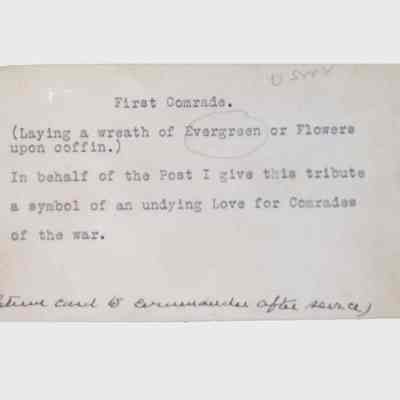 First Comrade.
(Laying a wreath of Evergreen or Flowers
upon coffin.)
In behalf of the Post I give this tribute
a symbol of an undying Love for Comrades
of the war.
card to commander after service)